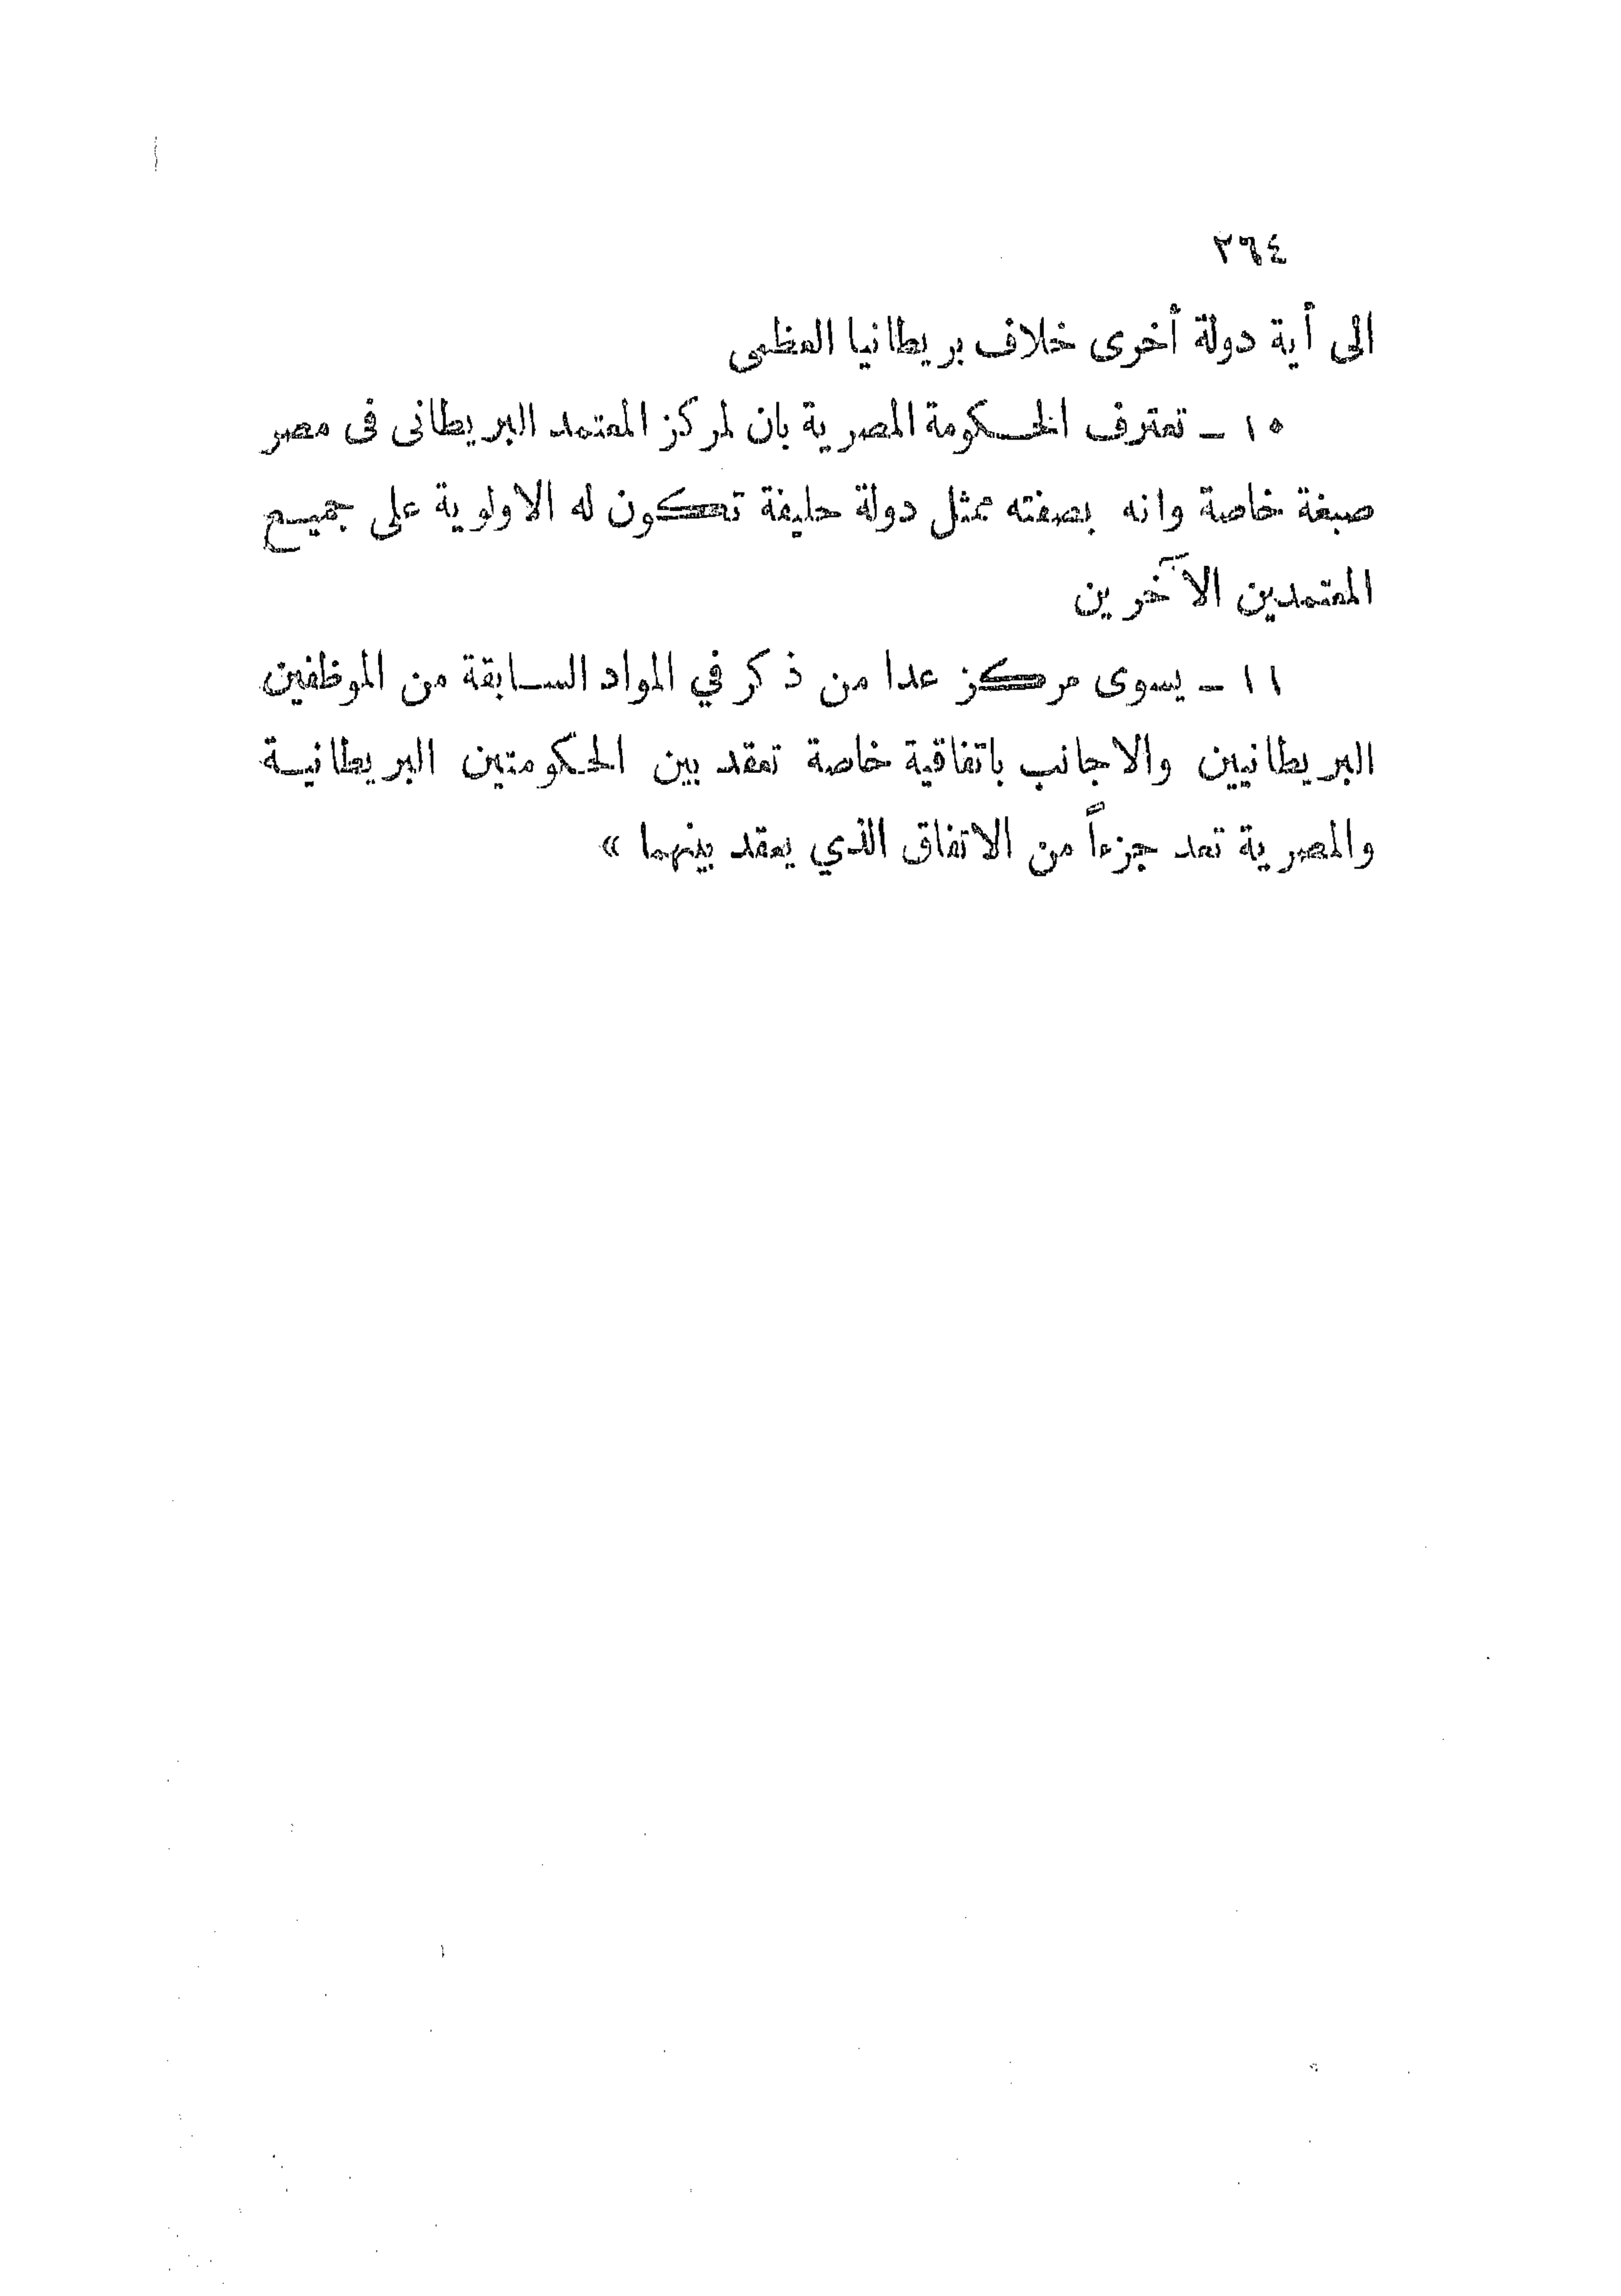 ٢٦٤
الى أية دولة أخرى خلاف بريطانيا العظمى
١٠ - تعترف الحكومة المصرية بان لمركز المعتمد البريطانى فى مصر
صبغة خاصة وانه بصفته ممثل دولة حليفة تكون له الاولوية على جميع
المعتمدين الآخرين
١١ - يسوى مركز عدا من ذكر في المواد السابقة من الموظفين
البريطانيين والاجانب باتفاقية خاصة تعقد بين الحكومتين البريطانية
والمصرية تعد جزءاً من الاتفاق الذي يعقد بينهما »